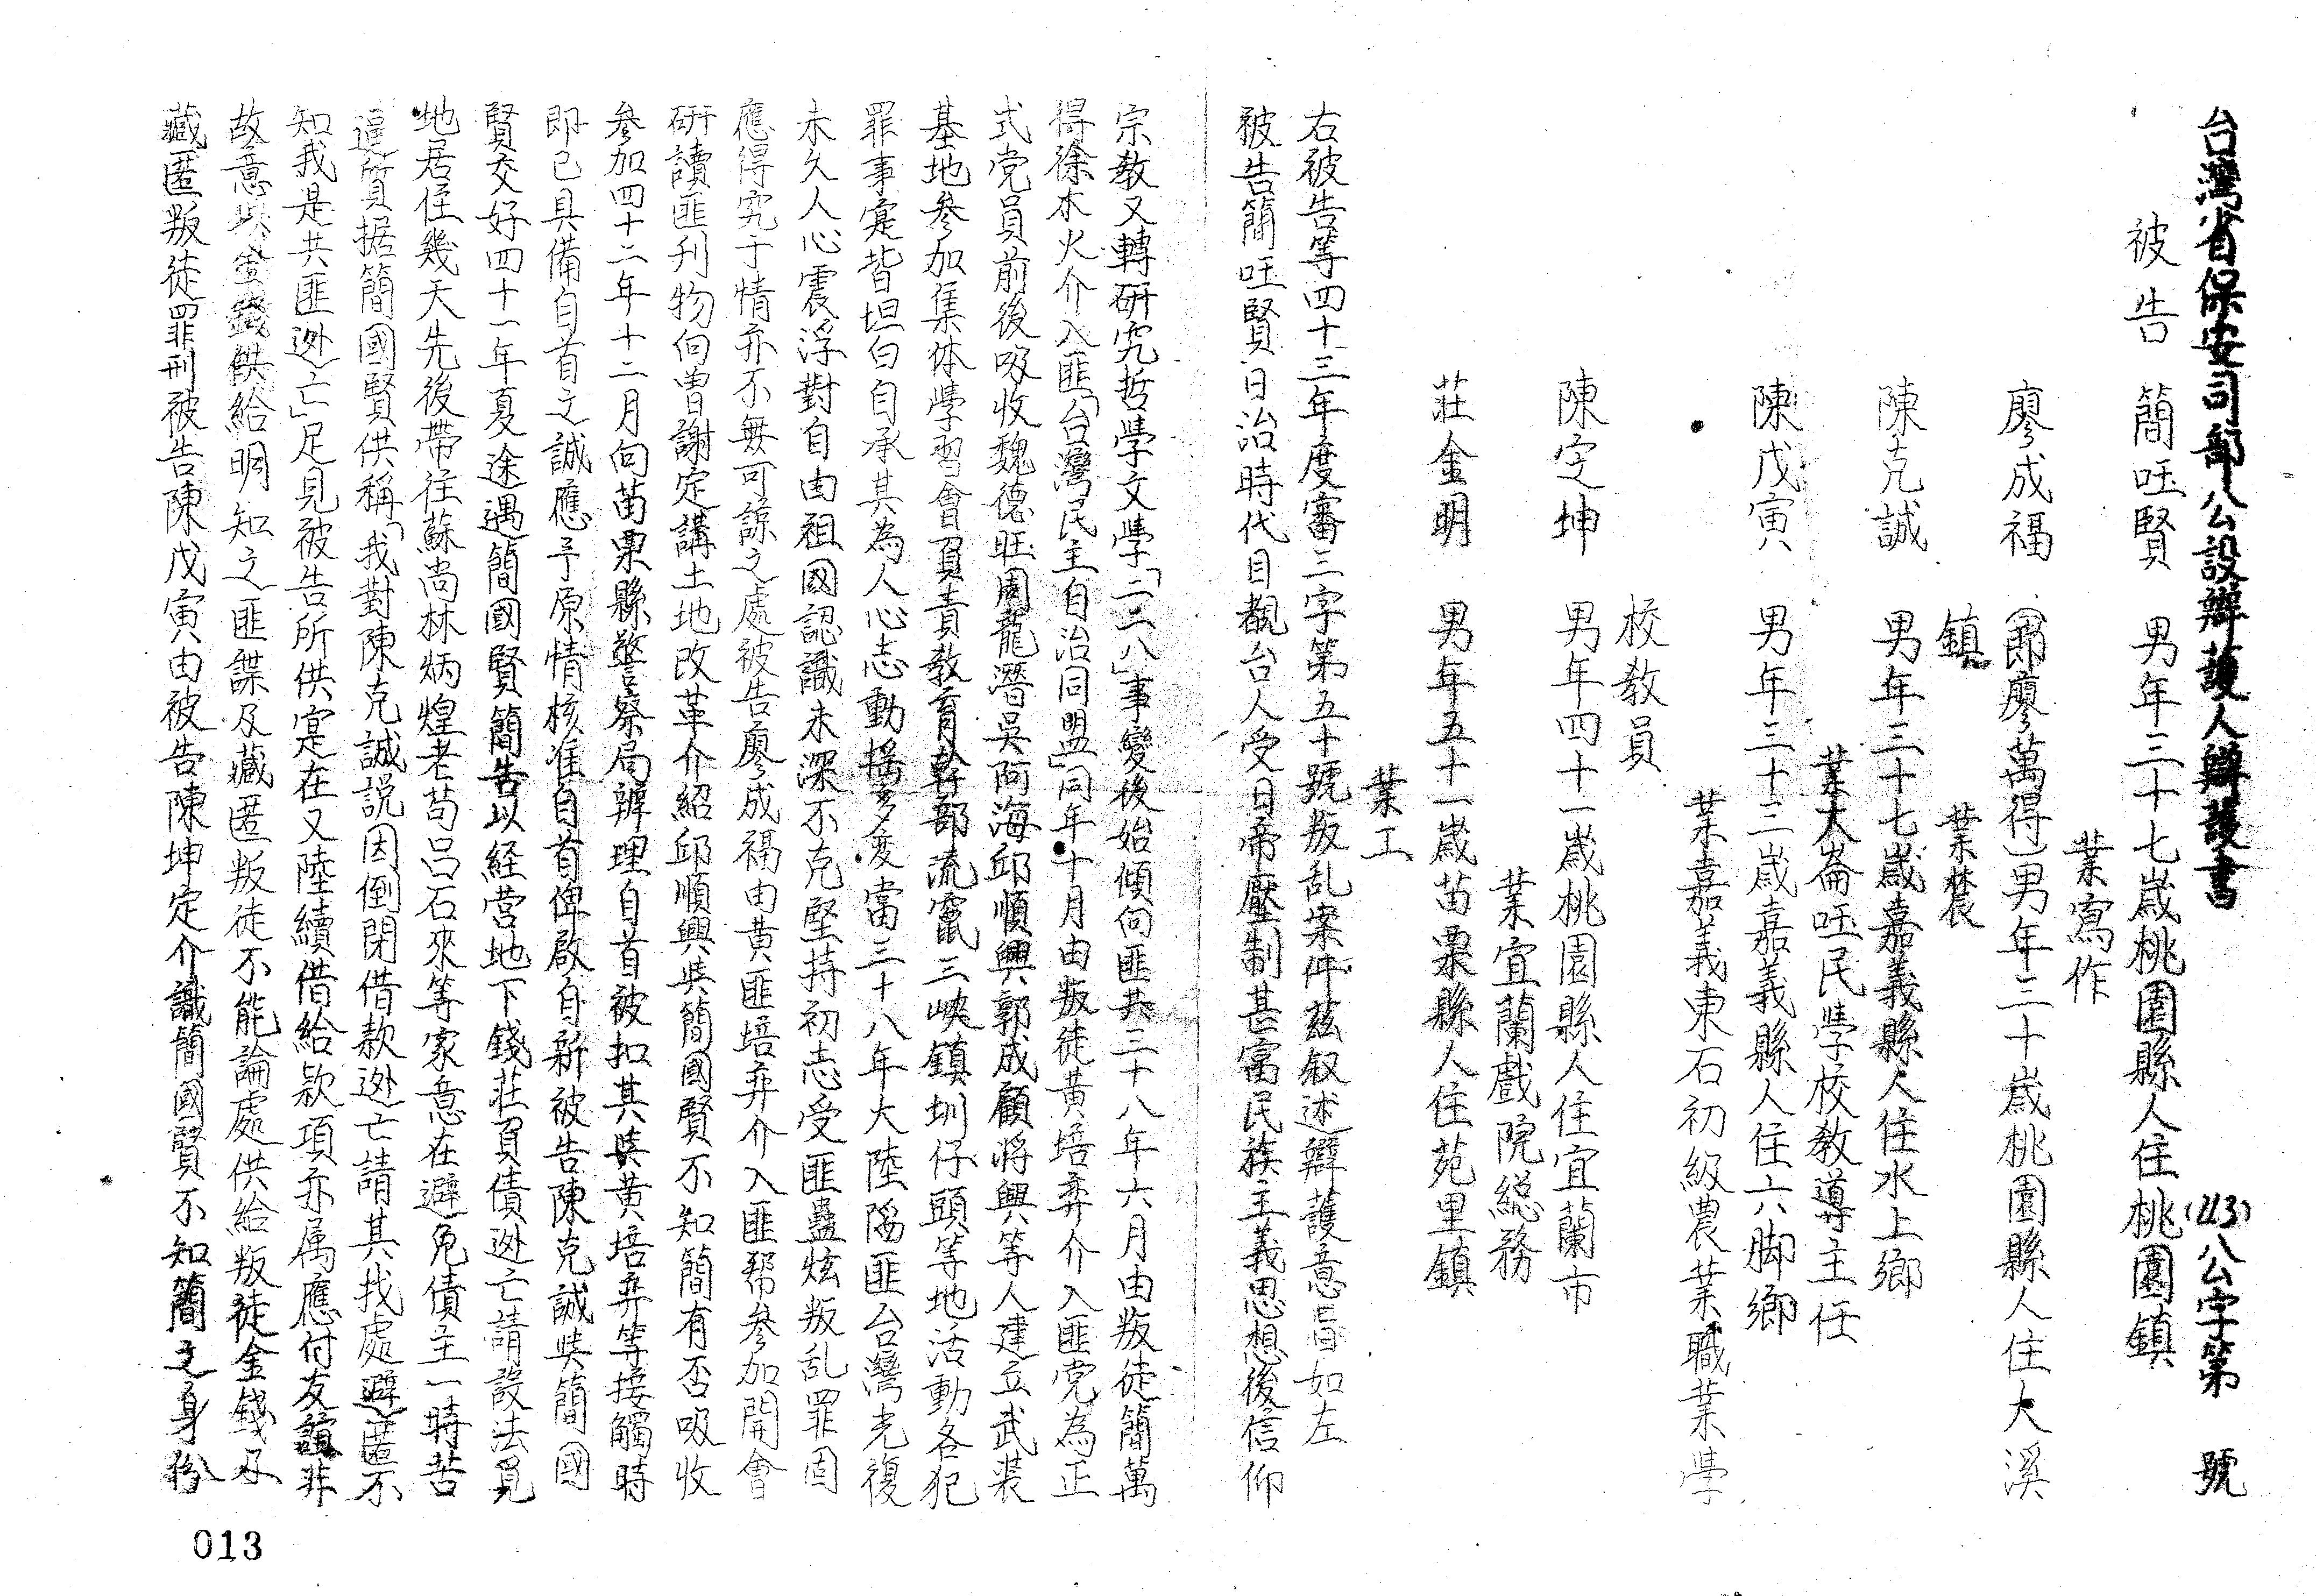 台灣省保安司令部公設辯護人辯護書　(43)公字第　號
被告　簡旺賢　男年三十七歲桃園縣人住桃園鎮
業寫作
廖成福　(即廖萬得)男年三十歲桃園縣人住大溪
鎮　業農
陳克誠　男年三十七歲嘉義縣人住水上鄉
業大崙旺民學校教導主任
陳戊寅　男年三十二歲嘉義縣人住六脚鄉
業嘉義東石初級農業職業學
校教員
陳定坤　男年四十一歲桃園縣人住宜蘭市
業宜蘭戲院総務
莊金明　男年五十一歲苗栗縣人住苑里鎮
業工
右被告等四十三年度審三字第五十號叛乱案件茲叙述辯護意旨如左
被告簡旺賢日治時代目覩台人受日帝壓制甚富民族主義思想後信仰
宗教又轉研究哲學文學「二二八」事變後始傾向匪共三十八年六月由叛徒簡萬
得徐木火介入匪「台灣民主自治同盟」同年十月由叛徒黃培奕介入匪党為正
式党員前後吸收魏德旺周龍潛吳阿海邱順興郭成顧將興等人建立武装
基地參加集体學習會負責教育幹部流竄三峽鎮圳仔頭等地活動各犯
罪事寔皆坦白自承其為人心志動搖多変當三十八年大陸陥匪台灣光復
未久人心震浮對自由祖國認識未深不克堅持初志受匪蠱炫叛乱罪固
應得究于情弃不無可諒之處被告廖成福由黃匪培奕介入匪帮參加開會
研讀匪刊物向曾謝定講土地改革介紹邱順興與簡國賢不知簡有否吸收
參加四十二年十二月向苗栗縣警察局辦理自首被扣其與黃培奕等接觸時
即已具備自首之誠應予原情核准自首俾啟自新被告陳克誠與簡國
賢交好四十一年夏途遇簡國賢簡告以経営地下錢莊負債逃亡請設法覓
地居住幾天先後帶往蘇尚林炳煌老苟呂石來等家意在避免債主一時苦
逼質据簡國賢供稱「我對陳克誠説因倒閉借款逃亡請其找處避匿不
知我是共匪逃亡」足見被告所供寔在又陸續借給款項亦属應付友誼非
故意與金錢供給明知之匪諜及藏匿叛徒不能論處供給叛徒金錢及
藏匿叛徒罪刑被告陳戊寅由被告陳坤定介識簡國賢不知簡之身份
013